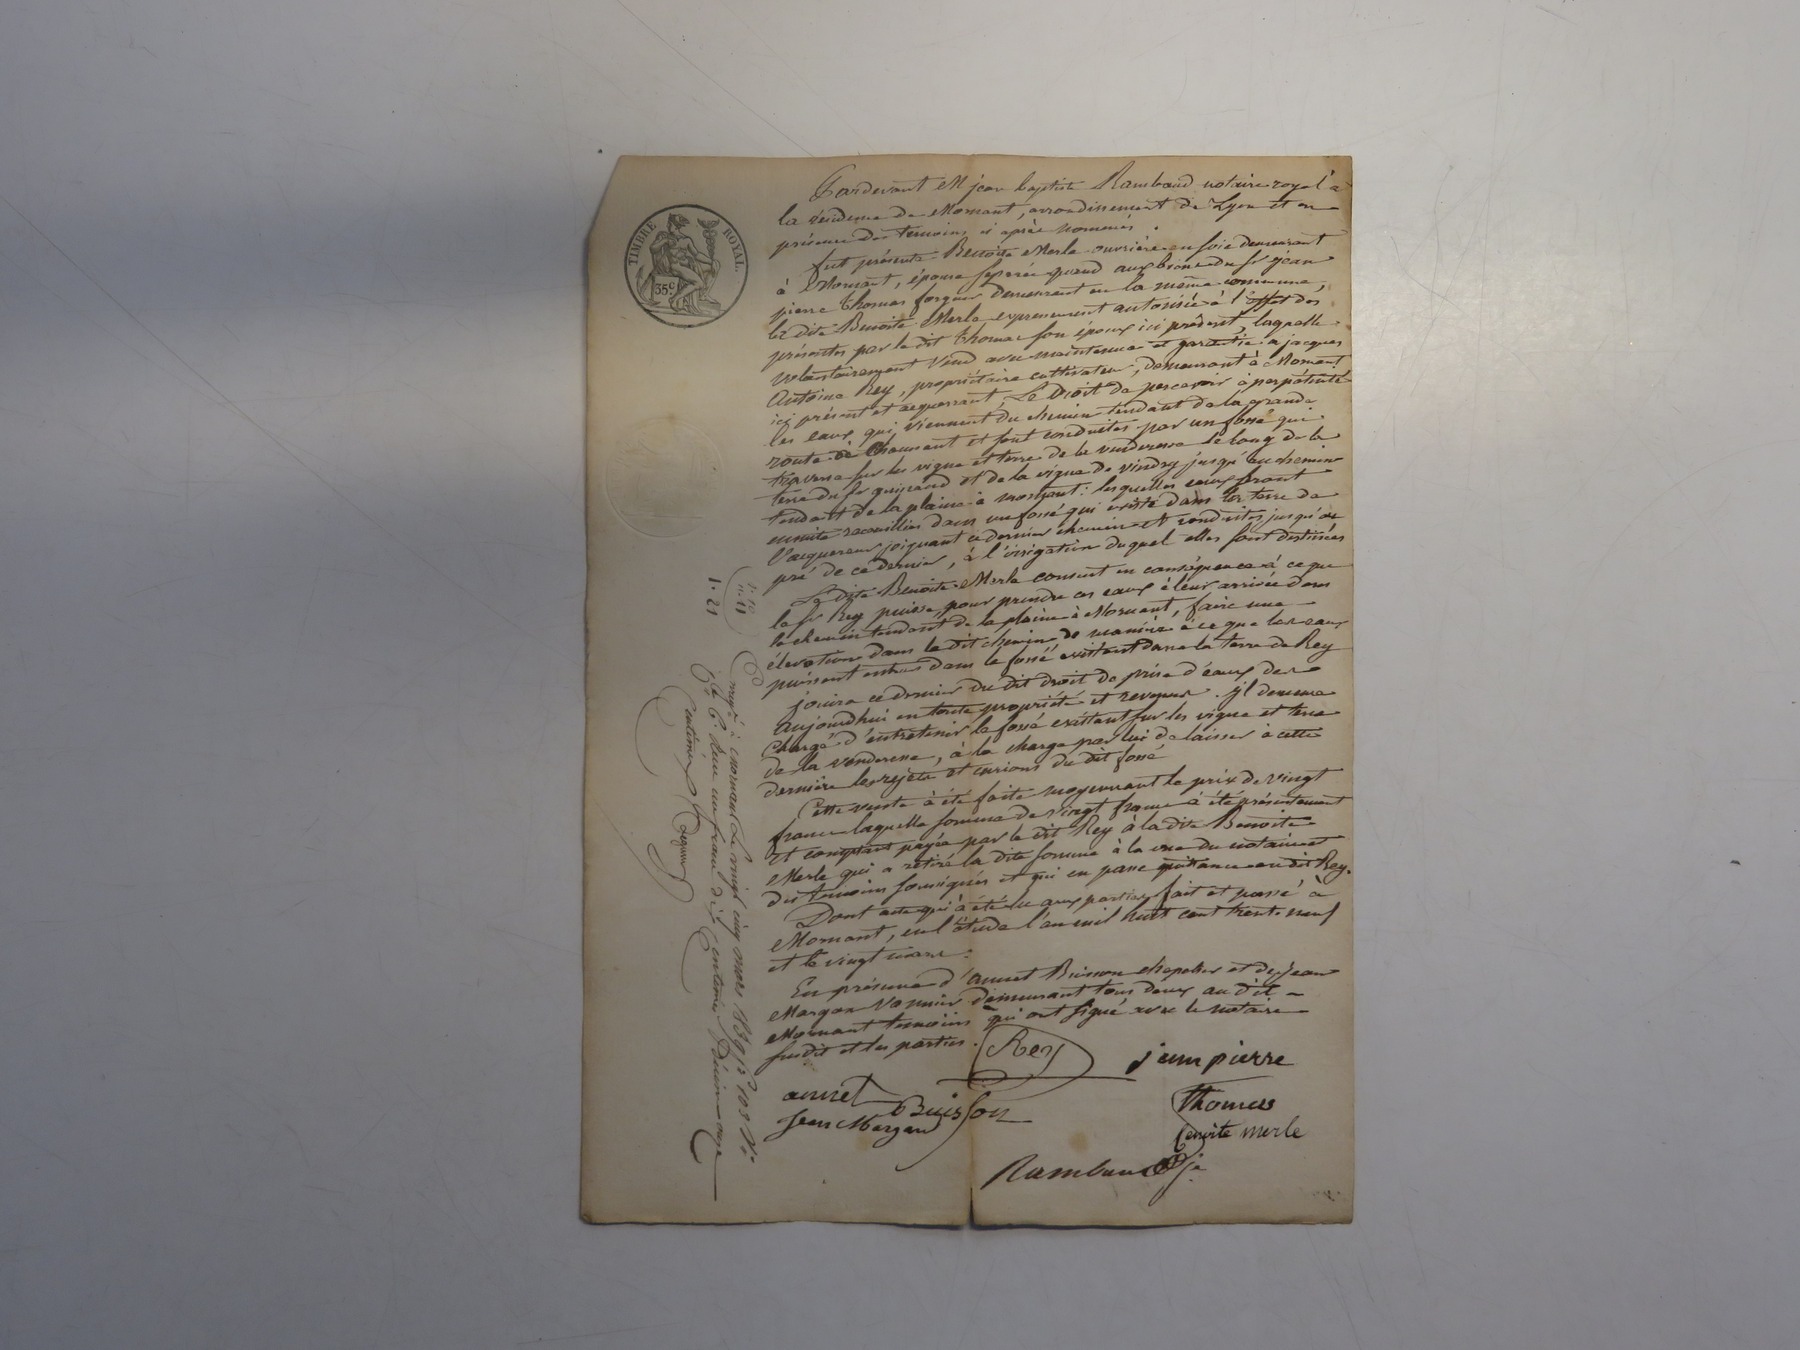 TIMBRE ROYAL
35 c
Pardevant M jean baptiste Rambaud notaire royal à
la résidence de Mornant, arrondissement de Lyon et en
présence des temoins ci après nommés.
fut présente Benoite Merle ouvrière en soie demeurant
à Mornant, épouse séparée quand aux biens du sr jean
pierre thomas demeurant en la même commune,
la dite Benoite Merle expressement autorisée à l'effet des
présentes par le dit thomas son époux ici présent, laquelle
volontairement vend avec maintenue et garantie à jacques
Antoine Rey, propriétaire cultivateur, demeurant à Mornant
ici présent et acquerrant, Le Droit de percevoir à perpétuité
les eaux qui viennent du chemin tendant de la grande
route à Chaussant et sont conduites par un fossé qui
traverse sur les vigne et terre de la venderesse le long de la
terre du sr guiraud et de la vigne de vindry jusqu'au chemin
tendant de la plaine à mornant: lesquelles eaux seront
ensuite recueillies dans un fossé qui existe dans la terre de
l'acquereur joignant ce dernier chemin et conduites jusqu'au
pré de ce dernier, à l'irrigation duquel elles sont destinées
La dite Benoite Merle consent en conséquence à ce que
le sr Rey puisse, pour prendre ces eaux à leur arrivée dans
le chemin tendant de la plaine à Mornant, faire une
élevation dans le dit chemin de manière à ce que les eaux
puissent entrer dans le fossé existant dans la terre de Rey
jouira ce dernier du dit droit de prise d'eaux dès
aujourdhui en toute propriété et revenus. il demeure
chargé d'entretenir le fossé existant sur les vigne et terre
de la venderesse, à la charge par lui de laisser à cette
dernière les rejets et curions du dit fossé
Cette vente à été faite moyennant le prix de vingt
francs laquelle somme de vingt francs à été présentement
et comptant payée par le dit Rey à la dite Benoite
Merle qui a retiré la dite somme à la vue du notaire et
des temoins soussignés et qui en passe quittance au dit Rey.
Dont acte qui à été lu aux parties, fait et passé à
Mornant, en l'étude l'an mil huit cent trente neuf
et le vingt mars.
En présence d'annet Buisson chapelier et de jean
Margan vannier demeurant tous deux au dit
Mornant temoins qui ont signé avec le notaire
susdit et les parties.
Rey
jean pierre
Thomas
annet Buisson
Jean Margan
benoite merle
Rambaud
1. 21
Enregé à Mornant Le vingt cinq mars 1839 fo 103 Vo
Co 6. Reçu un franc dix centimes Décime onze
centimes